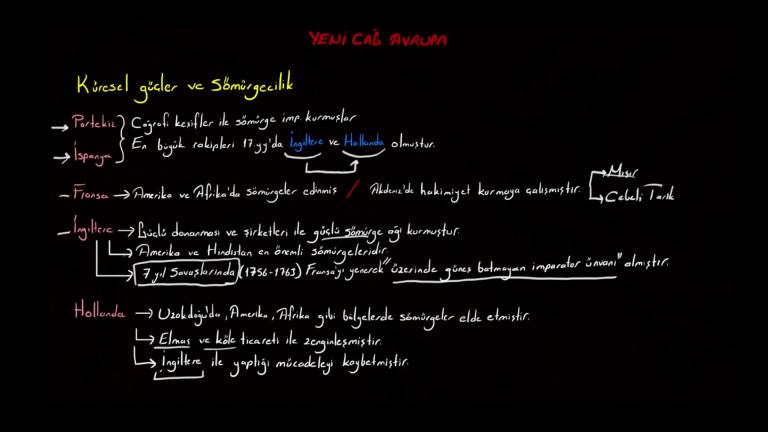 YENİ ÇAĞ AVRUPA
Küresel güçler ve Sömürgecilik
Portekiz
İspanya
Coğrafi keşifler ile sömürge imp. kurmuşlar
En büyük rakipleri 17.yy'da İngiltere ve Hollanda olmuştur.
Fransa → Amerika ve Afrika'da sömürgeler edinmiş / Akdeniz'de hakimiyet kurmaya çalışmıştır.
Mısır
Cebeli Tarık
İngiltere → Güçlü donanması ve şirketleri ile güçlü sömürge ağı kurmuştur.
Amerika ve Hindistan en önemli sömürgeleridir.
7 yıl Savaşlarında (1756-1763) Fransa'yı yenerek "üzerinde güneş batmayan imparator ünvanı" almıştır.
Hollanda → Uzakdoğu'da, Amerika, Afrika gibi bölgelerde sömürgeler elde etmiştir.
Elmas ve köle ticareti ile zenginleşmiştir.
İngiltere ile yaptığı mücadeleyi kaybetmiştir.